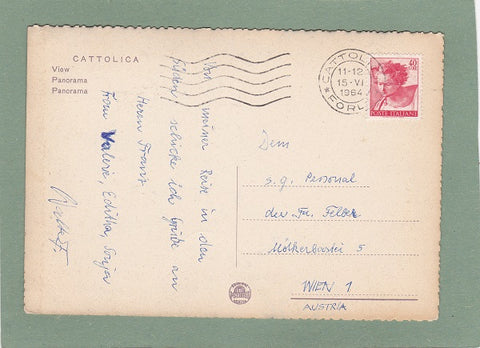 CATTOLICA
View
Panorama
Panorama
CATTOLICA
11-12
15-VI
1964
FORLI
40
POSTE ITALIANE
Von meiner Reise in den
Süden schicke ich Grüße an
Herrn Franz
Frau Valerie, Editha, Sonja
Dem
s.g. Personal
der Fa. Felber
Mölkerbastei 5
WIEN 1
AUSTRIA